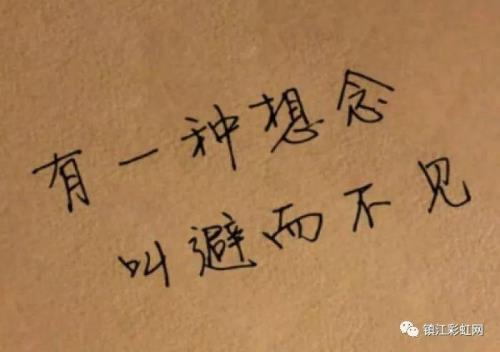 有一种想念
叫避而不见
镇江彩虹网